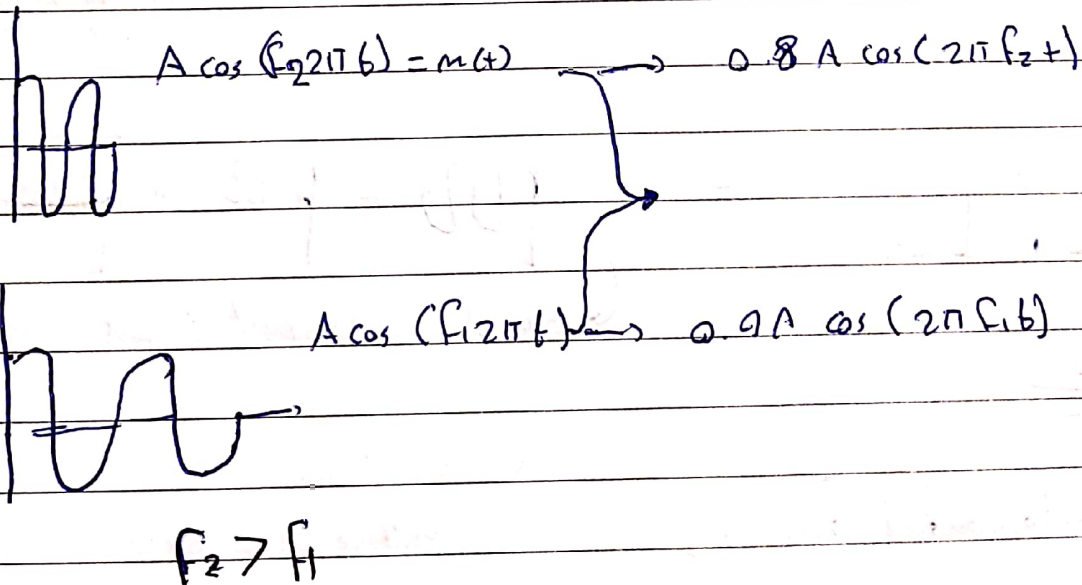 A cos (f₂2πt) = m(t) → 0.8 A cos (2π f₂ t)
A cos (f₁2πt) → 0.9A cos (2π f₁t)
f₂ > f₁